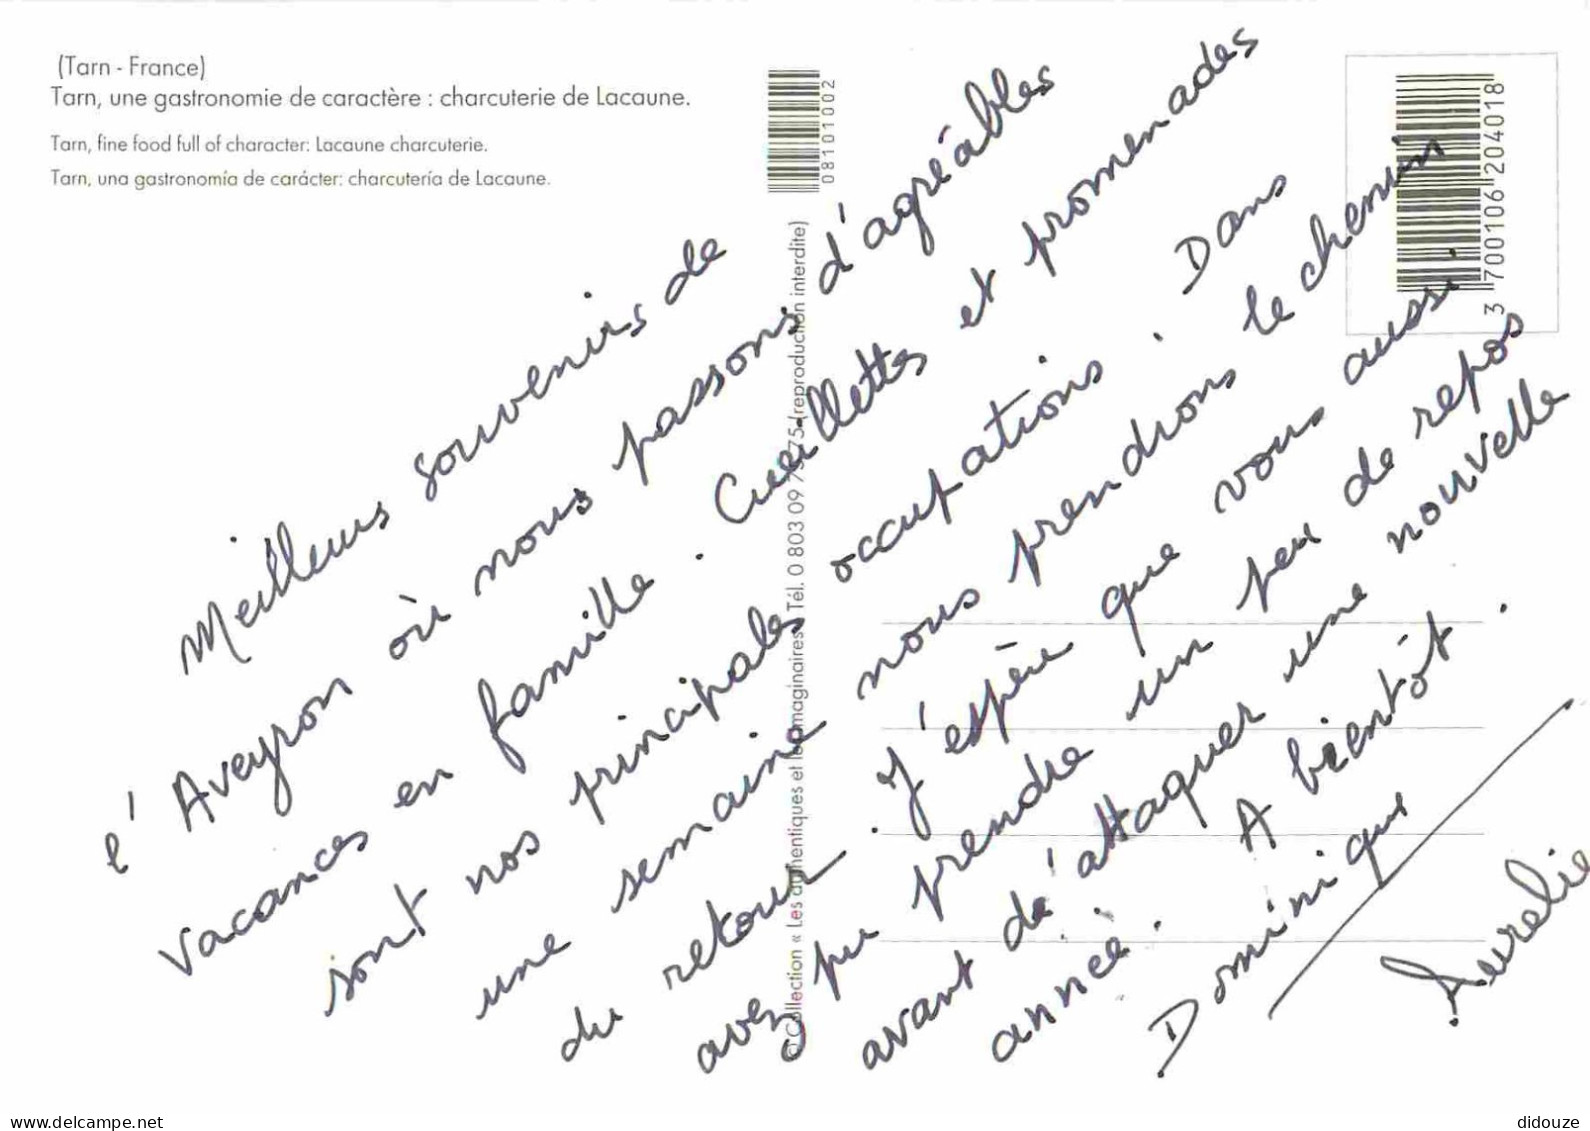 (Tarn - France)
Tarn, une gastronomie de caractère : charcuterie de Lacaune.
Tarn, fine food full of character: Lacaune charcuterie.
Tarn, una gastronomía de carácter: charcutería de Lacaune.
08101002
3 700106 204018
© Collection « Les authentiques et les imaginaires » Tél. 0 803 09 75 (reproduction interdite)
Meilleurs souvenirs de
l'Aveyron où nous passons d'agréables
vacances en famille. Cueillettes et promenades
sont nos principales occupations. Dans
une semaine nous prendrons le chemin
du retour. J'espère que vous aussi
avez pu prendre un peu de repos
avant d'attaquer une nouvelle
année. A bientôt.
Dominique
Aurelie
www.delcampe.net
didouze